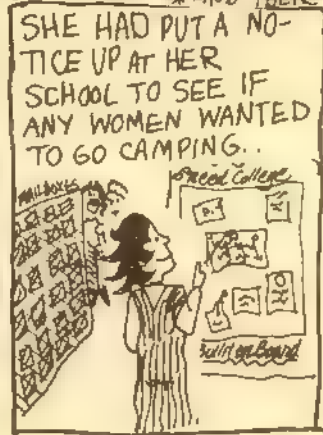 SHE HAD PUT A NO-
TICE UP AT HER
SCHOOL TO SEE IF
ANY WOMEN WANTED
TO GO CAMPING..
MAILBOXES
College